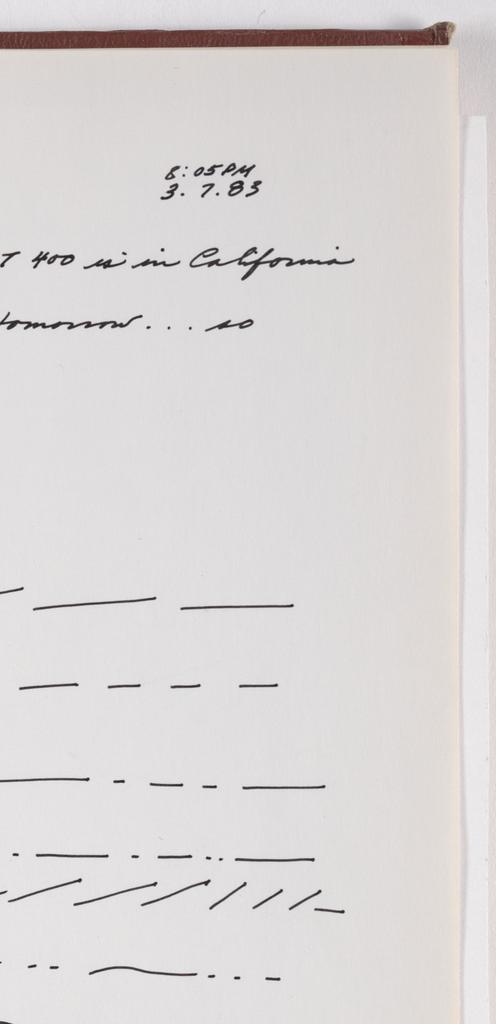 8:05PM
3. 7. 83
T 400 is in California
tomorrow . . . so